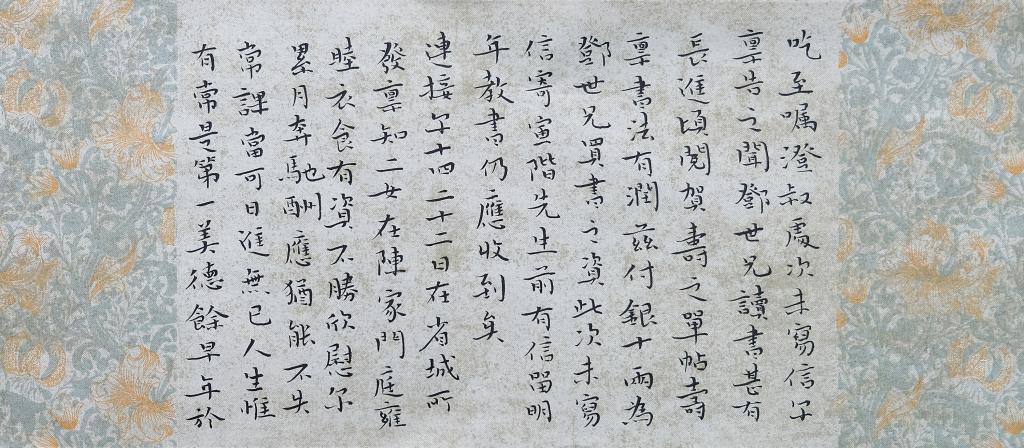 吃至嘱澄叔處次未寫信字
稟告之聞鄧世兄讀書甚有
長進頃閱賀壽之單帖壽
稟書法有潤茲付銀十兩為
鄧世兄買書之資此次未寫
信寄寅階先生前有信留明
年教書仍應收到矣
連接尔十四二十二日在省城所
發稟知二女在陳家門庭雍
睦衣食有資不勝欣慰尔
累月奔馳酬應猶能不失
常課當可日進無已人生惟
有常是第一美德餘早年於